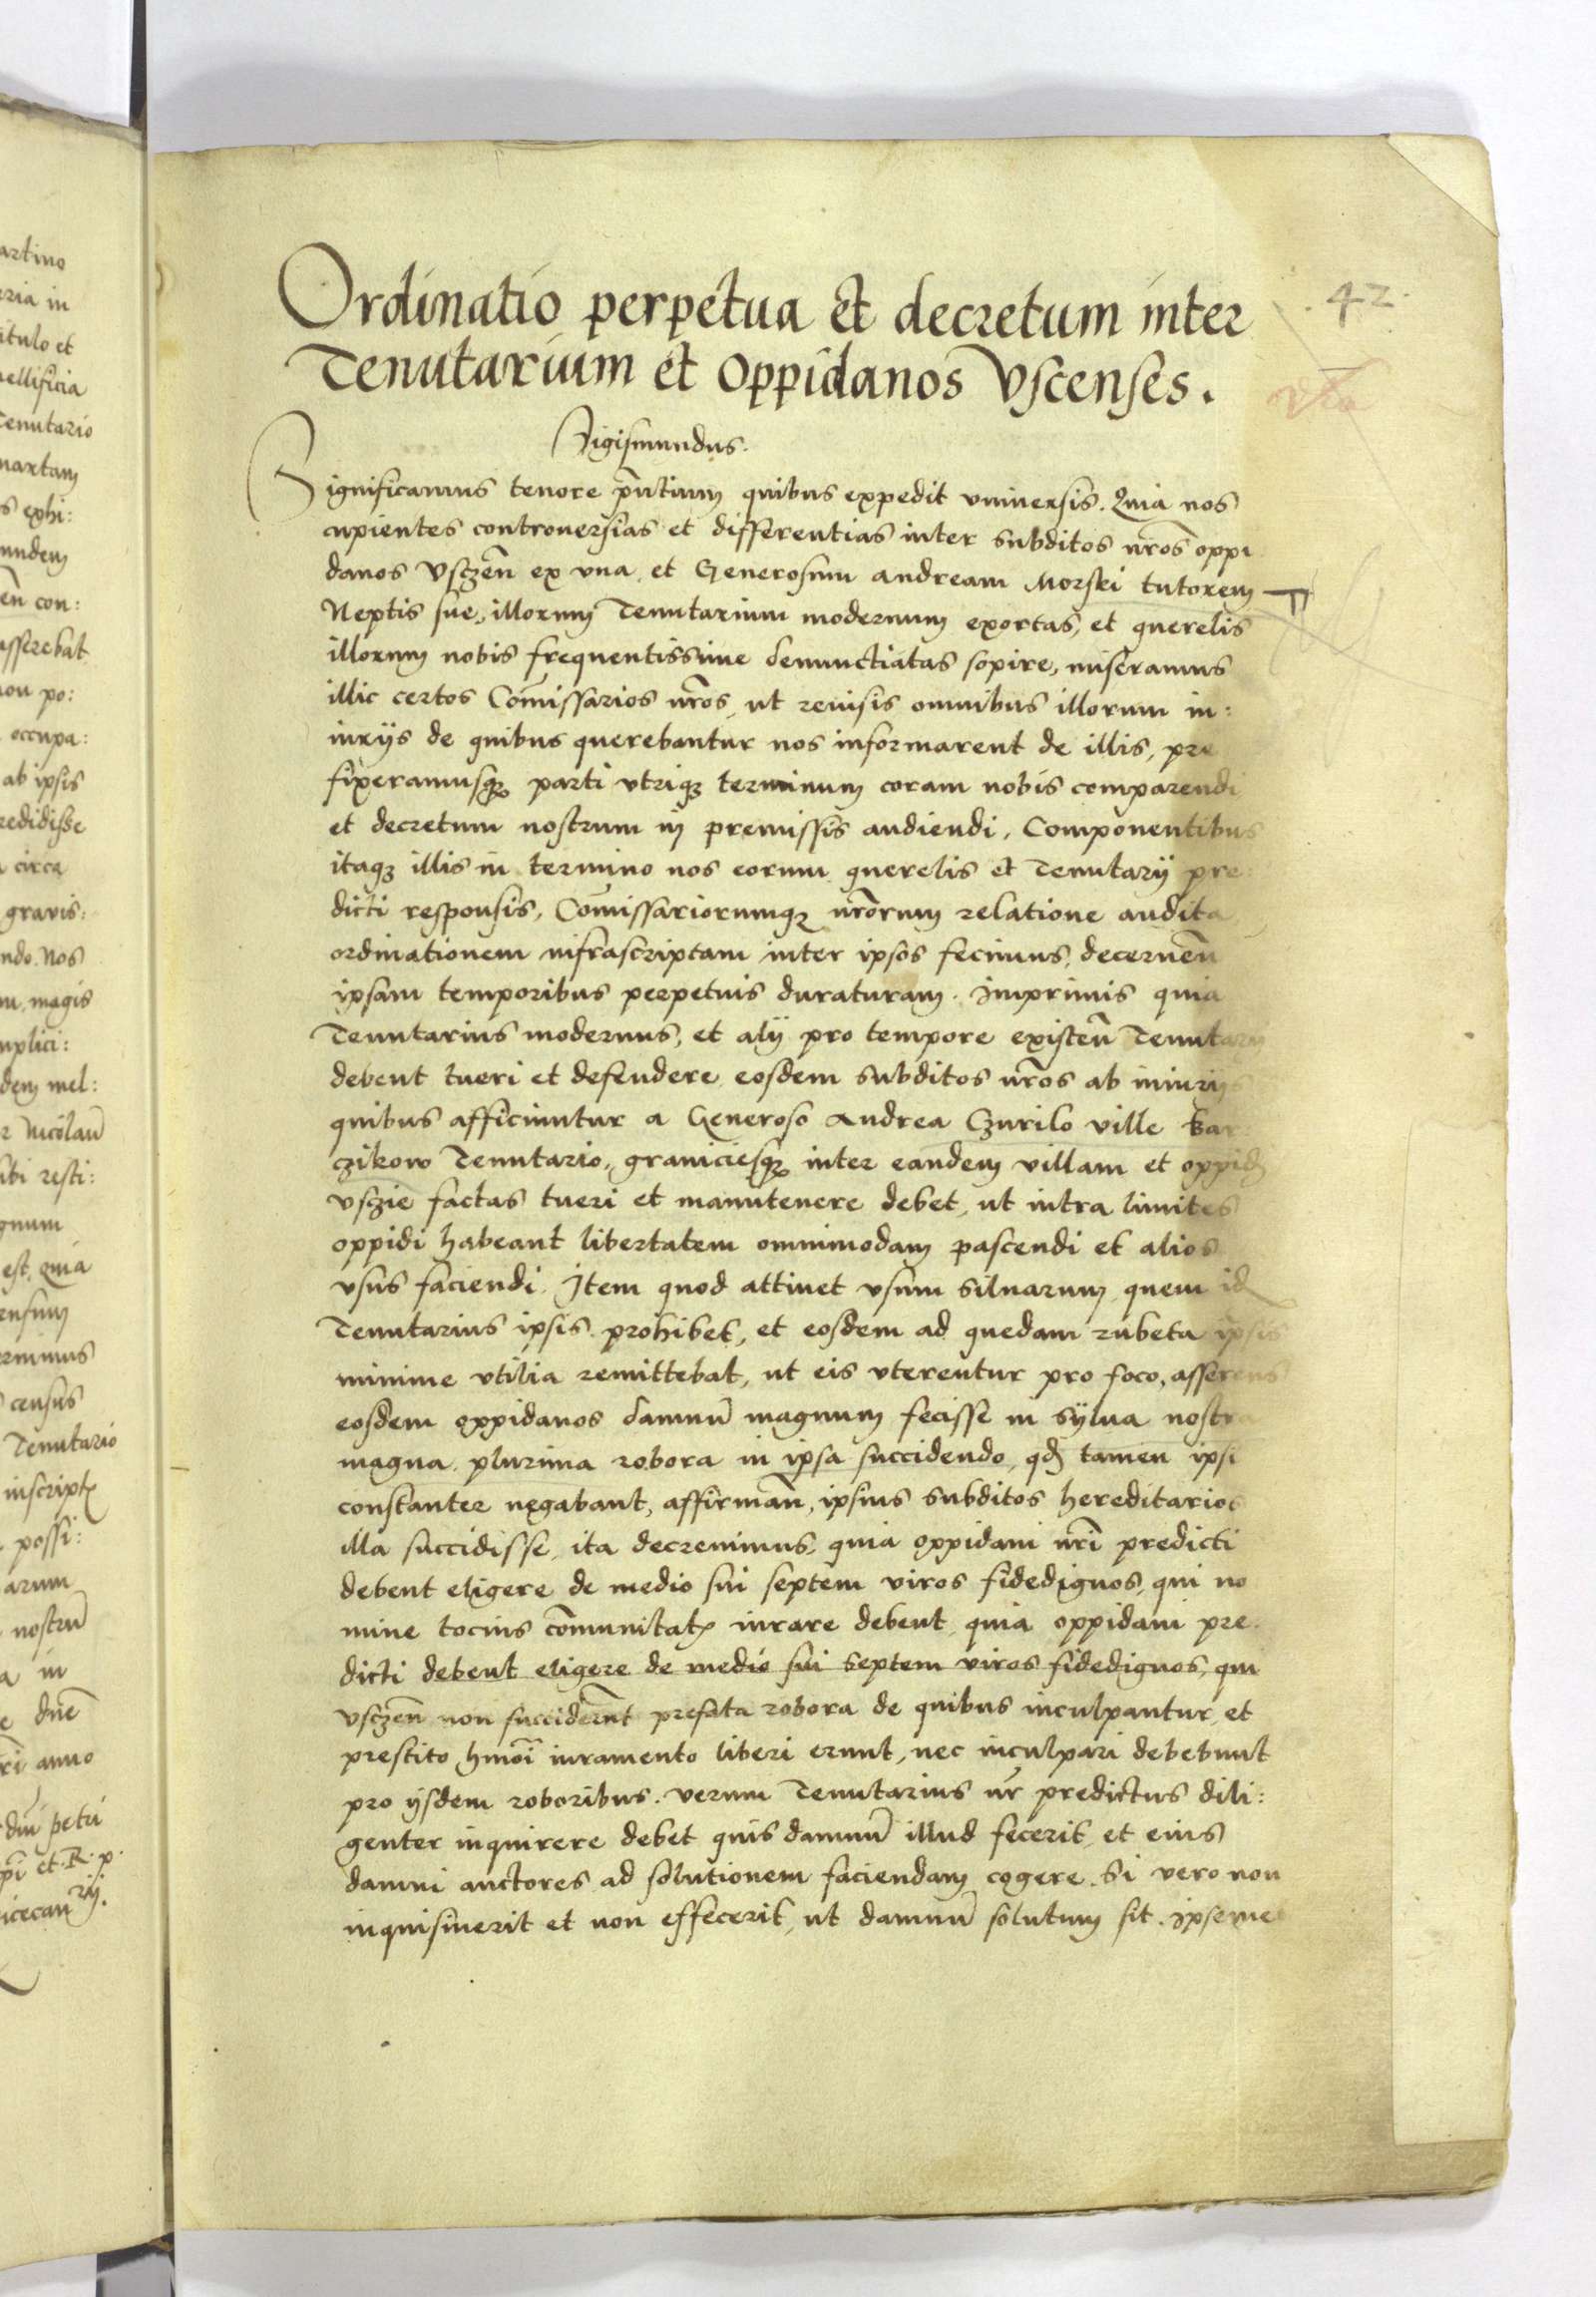 artino
eria in
itulo et
ellificia
Tenutario
martam
s exhi:
undem
en con:
asserebat
non po:
occupa:
ab ipsis
redidisse
circa
gravis:
ndo. Nos
m. magis
mplici:
dem mel:
r Nicolaū
ibi resti:
gnum
est, quia
ensum
ermimus
census
Tenutario
inscript
possi:
arum
nostrū
a in
e dnē
ri anno
petri
et. R. p.
icecan
42.
Ordinatio perpetua et decretum inter
Tenutarium et Oppidanos Vscenses.
Sigismundus.
Significamus tenore pñtium quibus expedit vniuersis. Quia nos
cupientes controuersias et differentias inter subditos nr̄os oppi
danos Vsczeñ ex vna, et Generosum andream Morski tutorem
Neptis sue, illorum Tenutarium modernum exortas, et querelis
illorum nobis frequentissime denunctiatas sopire, miseramus
illic certos Com̄issarios nr̄os, ut reuisis omnibus illorum in:
iurijs de quibus querebantur nos informarent de illis, pre
fixeramusq3 parti vtriq3 terminum coram nobis comparendi
et decretum nostrum in premissis audiendi, Componentibus
itaq3 illis in termino nos eorum querelis et Tenutarij pre:
dicti responsis, Com̄issariorumq3 nr̄orum relatione audita
ordinationem infrascriptam inter ipsos fecimus, decerneñ
ipsam temporibus perpetuis duraturam. Imprimis quia
Tenutarius modernus, et alij pro tempore existeñ Tenutarij
debent tueri et defendere eosdem subditos nr̄os ab iniurijs
quibus afficiuntur a Generoso Andrea Czurilo ville kar:
czikow Tenutario, graniciesq3 inter eandem villam et oppid
vsczie factas tueri et manutenere debet, ut intra limites
oppidi habeant libertatem omnimodam pascendi et alios
vsus faciendi. Item quod attinet vsum siluarum quem id
Tenutarius ipsis prohibet, et eosdem ad quedam rubeta ipsis
minime vtilia remittebat, ut eis vterentur pro foco, asserens
eosdem oppidanos damnū magnum fecisse in sÿlua nostra
magna plurima robora in ipsa succidendo, qd tamen ipsi
constanter negabant, affirmañ, ipsius subditos hereditarios
illa succidisse, ita decreuimus, quia oppidani nr̄i predicti
debent eligere de medio sui septem viros fidedignos, qui no
mine tocius com̄unitat iurare debent quia oppidani pre:
dicti debent eligere de medio sui septem viros fidedignos, qui
vsczeñ non succiderūt prefata robora de quibus inculpantur, et
prestito hmōi iuramento liberi erunt, nec inculpari debebunt
pro ijsdem roboribus. verum Tenutarius nr̄ predictus dili:
genter inquirere debet quis damnū illud fecerit, et eius
damni auctores ad solutionem faciendam cogere. Si vero non
inquisiuerit et non effecerit, ut damnū solutum sit. ipsemet